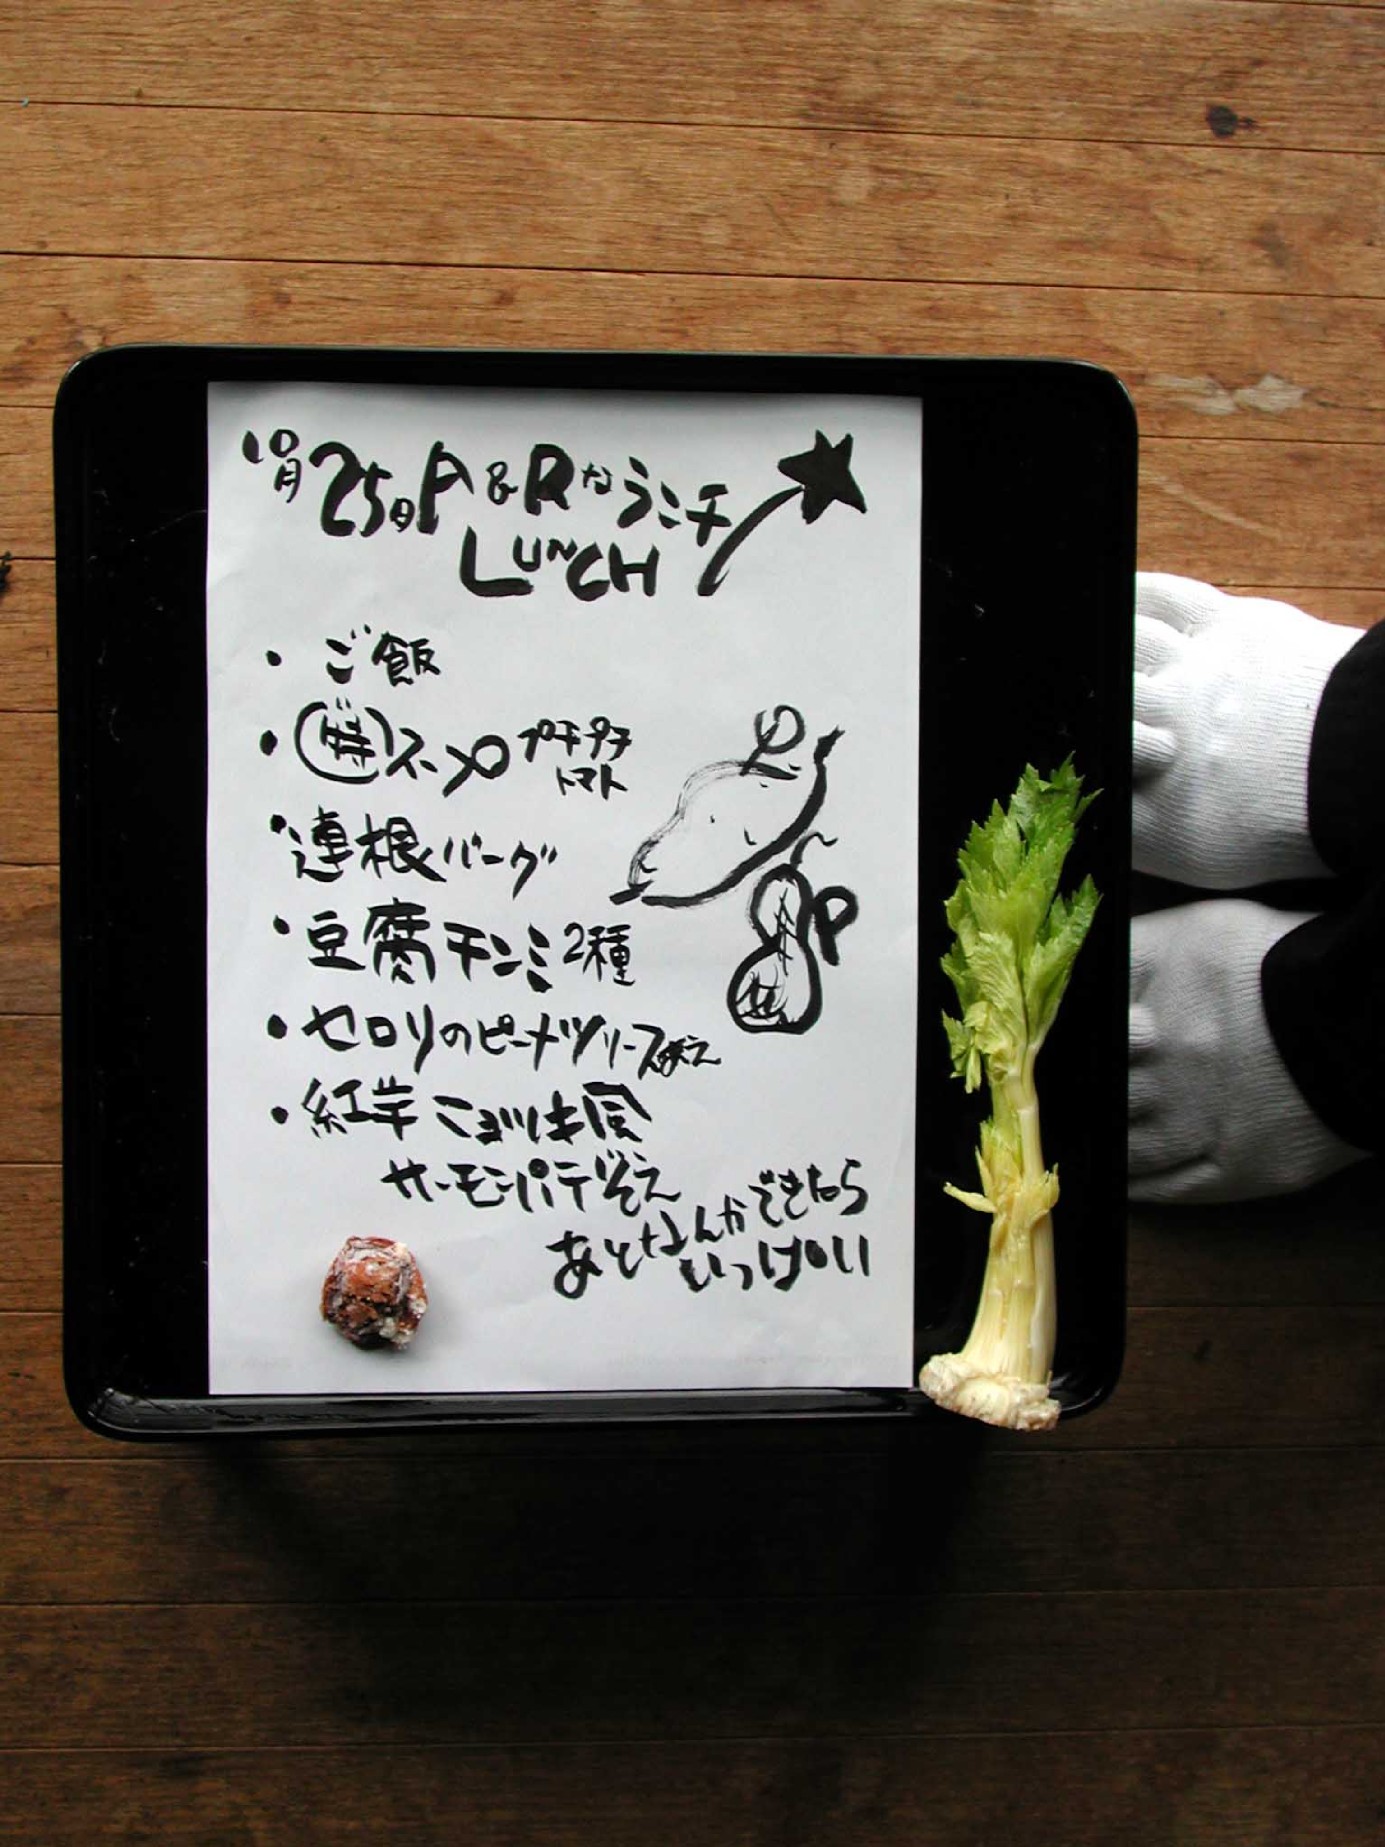 10月25日P&Rなランチ
LUNCH
・ご飯
・(特)スープ プチプチ
トマト
・蓮根バーグ
・豆腐チンミ2種
・セロリのピーナツソースあえ
・紅芋ニョッキ風
サーモンパテぞえ
あとなんかできたら
いっぱい
R
P